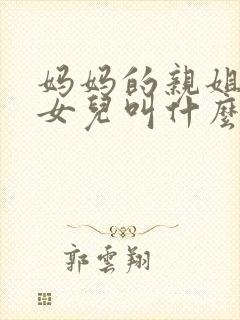 妈妈的親姐
女兒叫什麼
郭雲翔